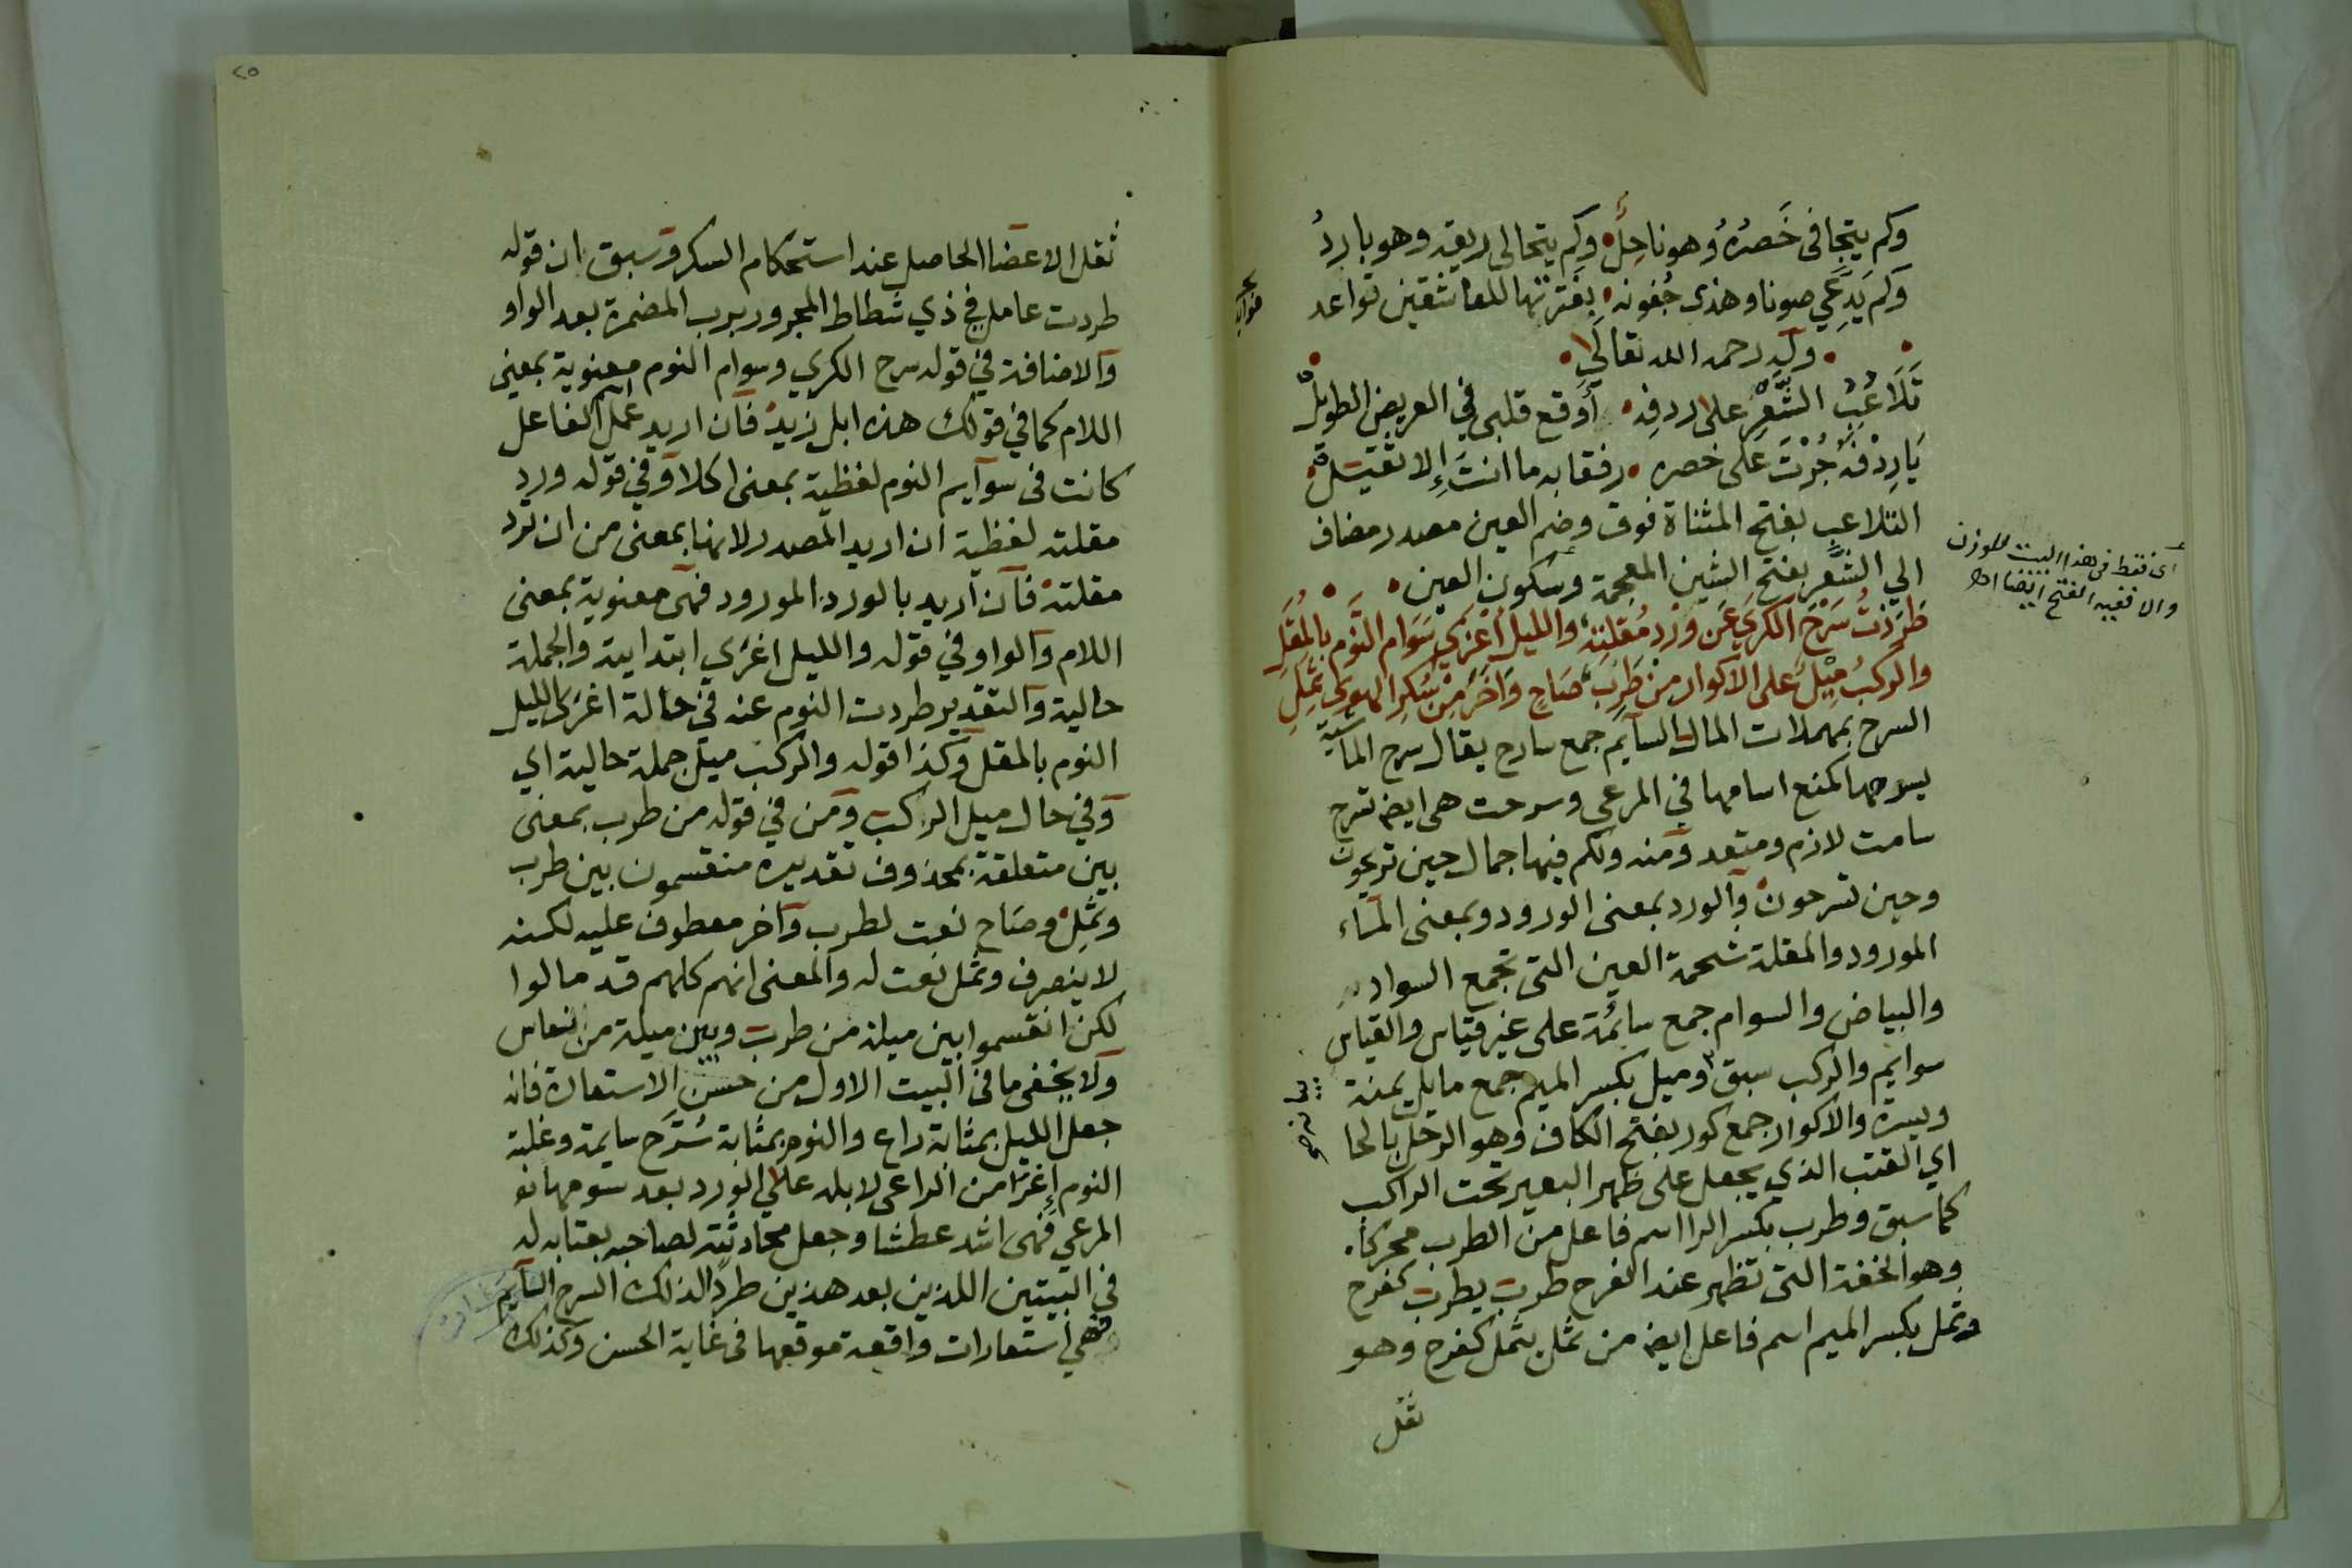 وكم يتجافى خَصرُهُ وهو ناحِلٌ وكم يتحالى ريقه وهو باردُ
وكم يَدَّعي صونا وهذى جُفونه بِفَترتها للعاشقين تواعد
وله رحمه الله تعالى
تَلَاعُبُ الشَّعْرِ على ردفه أوقع قلبى في العريض الطويل
يَا رِدْفَهُ جُرْتَ على خصره رفقا به ما انتَ إلا ثقيل
التلاعب بفتح المثناة فوق وضم العين مصدر مضاف
الي الشَّعر بفتح الشين المعجمة وسكون العين
أى فقط فى هذا البيت للوزن
والا ففيه الفتح ايضا اهـ
طَرَدْتُ سَرْحَ الكَرَي عَن وِرْدِ مُقلتِه والليلُ أغرَي سَوَام النَّوم بالمُقَلِ
والركبُ مِيْلٌ على الاكوار من طَرِبٍ صَاحٍ وَآخَرَ مِنْ سُكرِ الهوى ثَمِلِ
السرح بمهملات المال السآيم جمع سارح يقال سرح الماشية
يسرحها كمنع اسامها في المرعى وسرحت هى ايضا تسرح
سامت لازم ومتعد ومنه ولكم فيها جمال حين تريحون
وحين تسرحون والورد بمعنى الورود وبمعنى المآء
المورود والمقلة شحمة العين التى تجمع السواد
والبياض والسوام جمع سائمة على غير قياس والقياس
سوايم والركب سبق وميل بكسر الميم جمع مايل يمنة
ويسرة والاكوار جمع كور بفتح الكاف وهو الرحل بالحا
اي القتب الذي يجعل على ظهر البعير تحت الراكب
كما سبق وطرب بكسر الرا اسم فاعل من الطرب محركا
وهو الخفة التى تظهر عند الفرح طرب يطرب كفرح
وثمل بكسر الميم اسم فاعل ايضا من ثمل يثمل كفرح وهو
ثقل
ثقل الاعضا الحاصل عند استحكام السكر وسبق ان قوله
طردت عامل في ذي شطاط المجرور برب المضمرة بعد الواو
والاضافة في قوله سرح الكري وسوام النوم معنوية بمعنى
اللام كما في قولك هذه ابل زيد فان اريد عمل الفاعل
كانت فى سوآيم النوم لفظية بمعنى اكلا وفي قوله ورد
مقلته لفظية ان اريد المصدر لانها بمعنى من ان ترد
مقلته فان اريد بالورد المورود فهى معنوية بمعنى
اللام والواو في قوله والليل اغرَي ابتدايية والجملة
حالية والتقدير طردت النوم عنه في حالة اغرى الليل
النوم بالمقل وكذا قوله والركب ميل جملة حالية اي
وفي حال ميل الراكب ومن في قوله من طرب بمعنى
بين متعلقة بمحذوف تقديره منقسمون بين طرب
وثَمِل وصَاح نعت لطرب وآخر معطوف عليه لكنه
لا ينصرف وثمل نعت له والمعنى انهم كلهم قد مالوا
لكن انقسموا بين ميلة من طرب وبين ميلة من نعاس
ولا يخفى ما في البيت الاول من حسن الاستعارة فانه
جعل الليل بمثابة راع والنوم بمثابة سُرَّح سايمة وغلبة
النوم إغرا من الراعى لابله على الورد بعد سومها
المرعي فهى اشد عطشا وجعل محادثته لصاحبه بعتابه له
في البيتين اللذين بعد هذين طردًا لذلك السرح السآيم
وهي استعارات واقعة موقعها فى غاية الحسن وكذلك
٢٥